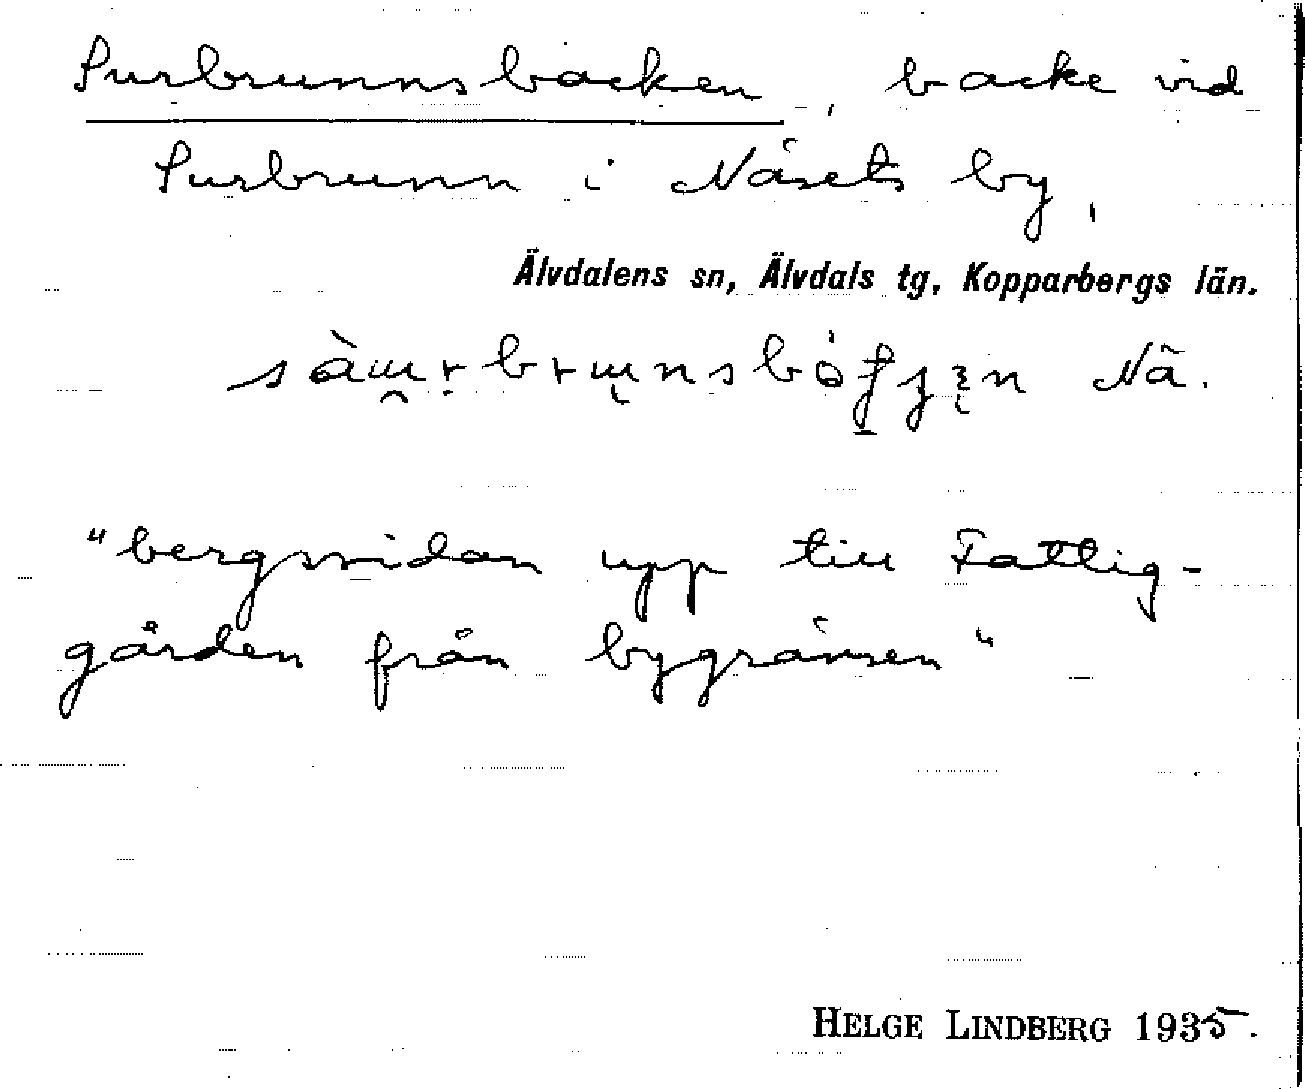 Surbrunnsbacken, backe vid
Surbrunn i Näsets by,
Älvdalens sn, Älvdals tg, Kopparbergs län.
Nä.
"bergssidan upp till Fattig-
gården från bygränsen"
HELGE LINDBERG 1935.